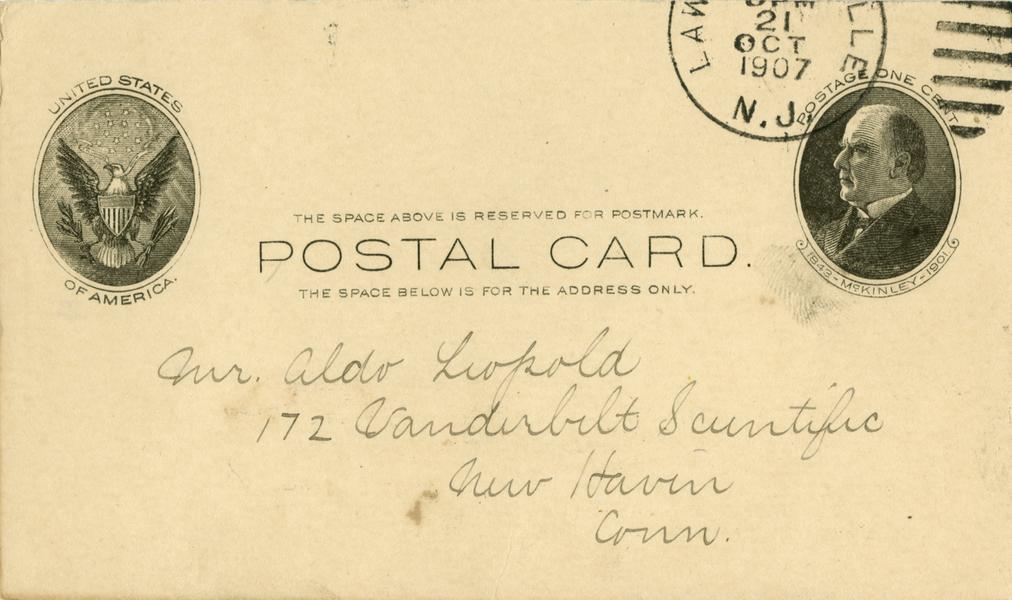 21
OCT
1907
N.J.
UNITED STATES
OF AMERICA.
POSTAGE ONE CENT
1843-McKINLEY-1901
THE SPACE ABOVE IS RESERVED FOR POSTMARK.
POSTAL CARD.
THE SPACE BELOW IS FOR THE ADDRESS ONLY.
Mr. Aldo Leopold
172 Vanderbilt Scientific
New Haven
Conn.